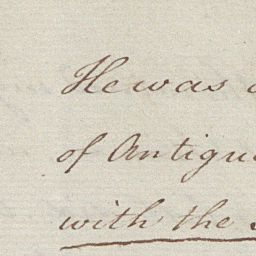 He was
of Antigu
with the